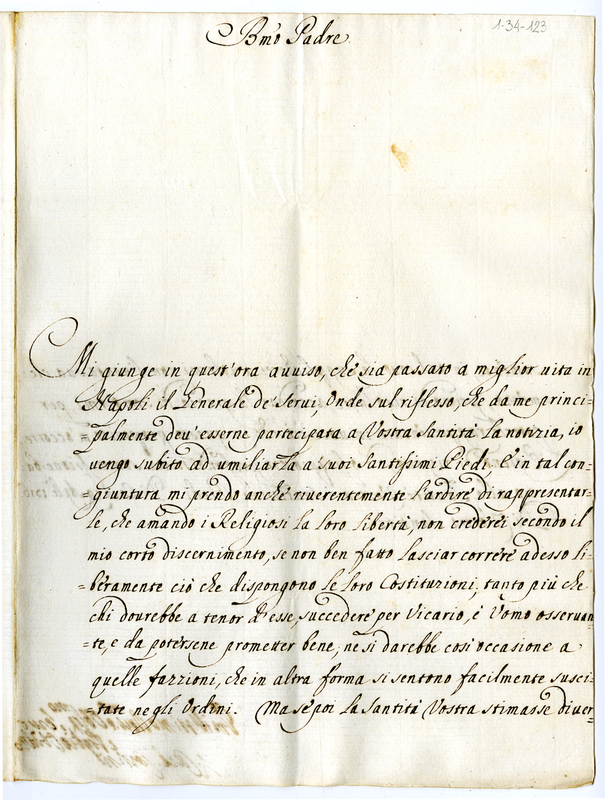 1-34-123
Bmo Padre
Mi giunge in quest'ora avviso, che sia passato a miglior vita in
Napoli il Generale de' Servi, Onde sul riflesso, che da me princi=
=palmente deu'esserne partecipata a Vostra Santità la notizia, io
vengo subito ad umiliarla a' suoi Santissimi Piedi. E in tal con=
=giuntura mi prendo anche riverentemente l'ardire di rappresentar=
=le, che amando i Religiosi la loro libertà, non crederei secondo il
mio corto discernimento, se non ben fatto lasciar correre adesso li=
=beramente ciò che dispongono le loro Costituzioni, tanto più che
chi dourebbe a tenor d'esse, succedere per Vicario, è Uomo osseruan=
=te, e da potersene prometter bene, ne si darebbe così occasione a
quelle fazzioni, che in altra forma si sentono facilmente susci=
=tate negli Ordini. Ma se poi la Santità Vostra stimasse diuer=